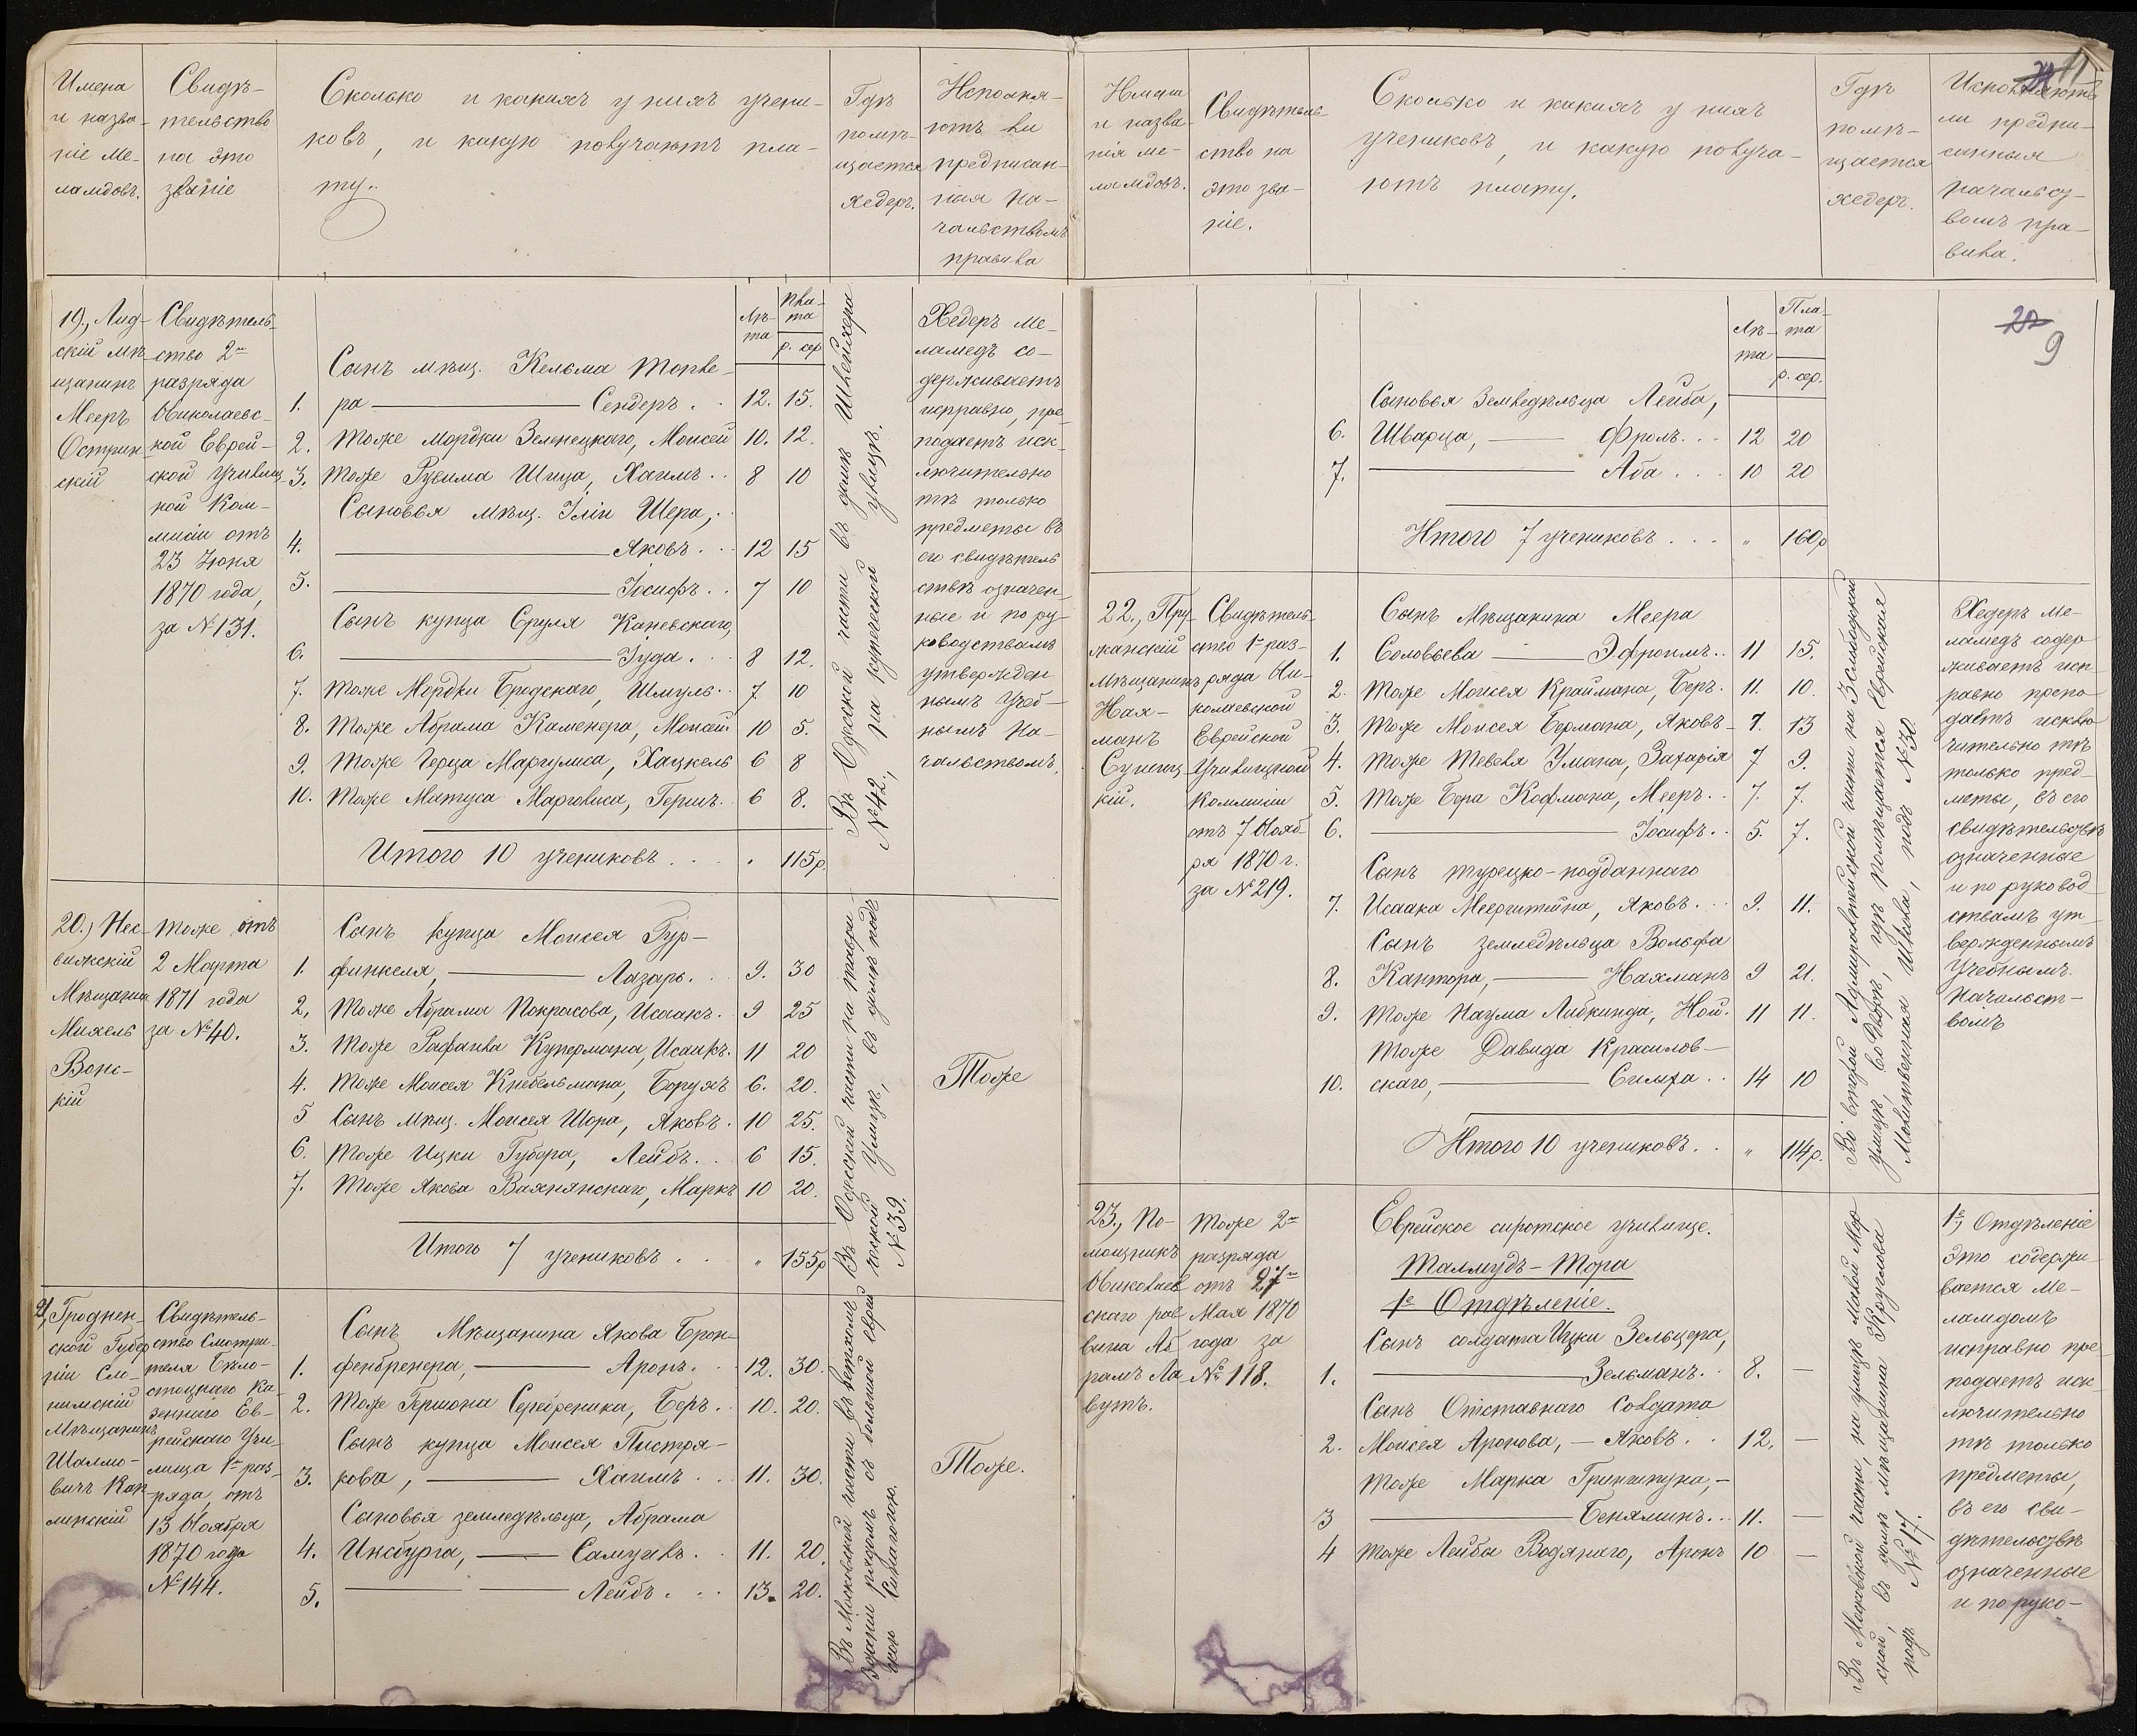 Имена
и назва-
ніе ме-
ламдовъ.
Свидѣ-
тельство
на это
званіе
Сколько и какихъ у нихъ учени-
ковъ, и какую получаютъ пла-
ту.
Гдѣ
помѣ-
щается
хедеръ.
Исполня-
ютъ ли
предписан-
ныя на-
чальствомъ
правила
19., Лид-
скій мѣ-
щанинъ
Мееръ
Острин-
скій
Свидѣтель-
ство 2го
разряда
Николаевс-
кой Еврей-
ской Училищ-
ной Ком-
мисіи отъ
23 Іюня
1870 года,
за №131.
Лѣ-
та
Пла-
та
р. сер
Сынъ мѣщ. Кельма Топке-
1. ра Сендеръ. 12. 15.
2. Тоже Мордки Зеленецкаго, Моисей 10. 12.
3. Тоже Рувима Шица, Хаимъ.. 8 10
Сыновья мѣщ. Іліи Шера,
4. Яковъ. 12 15
5. Іосифъ.. 7 10
Сынъ купца Сруля Каневскаго,
6. Іуда... 8 12.
7. Тоже Мордки Бродскаго, Шмуль.. 7 10
8. Тоже Абрама Каменера, Моисей 10 5.
9. Тоже Герца Маргулиса, Хацкель 6 8
10. Тоже Матуса Марголиса, Гершъ. 6 8.
Итого 10 учениковъ.... 115р.
Въ Одесской части въ домѣ Швейцера
№42, на купеческой улицѣ.
Хедеръ ме-
ламедъ со-
держиваетъ
исправно, пре-
подаетъ иск-
лючительно
тѣ только
предметы въ
его свидѣтель
ствѣ означен-
ные и по ру-
ководствамъ
утвержден
нымъ Учеб-
нымъ На-
чальствомъ.
20., Нес-
вижскій
Мѣщанин
Михель
Вонс-
кій
Тоже отъ
2 Марта
1871 года
за №40.
Сынъ купца Моисея Гур-
1. финкеля, Лазарь. 9. 30
2, Тоже Абрама Покрасова, Исаакъ. 9 25
3. Тоже Рафаила Купермана, Исаакъ. 11 20
4. Тоже Моисея Кнебельмана, Борухъ 6. 20.
5 Сынъ мѣщ. Моисея Шора, Яковъ. 10 25.
6. Тоже Ицки Губера, Лейбъ.. 6 15.
7. Тоже Якова Вахнянскаго, Маркъ 10 20.
Итого 7 учениковъ.... „ 155р
Въ Одесской части на таври-
ческой Улицѣ, въ домѣ подъ
№39.
Тоже
21, Гроднен-
ской Губер
ніи Сло-
нимскій
Мѣщанинъ
Шаломо-
вичъ Кап-
линскій
Свидѣтель-
ство Смотри-
теля Бѣло-
стоцкаго Ка-
зеннаго Ев-
рейскаго Учи-
лища 1го раз-
ряда, отъ
13 Ноября
1870 года
№144.
Сынъ Мѣщанина Якова Брон-
1. фенбренера, Аронъ. 12. 30.
2. Тоже Гершона Серебреника, Беръ.. 10. 20.
Сынъ купца Моисея Пистря-
3. кова, Хаимъ.. 11. 30.
Сыновья земледѣльца, Абрама
4. Инсбурга, Самуилъ. 11. 20.
5. Лейбъ... 13. 20.
Въ Московской части въ ветхомъ
зданіи рядомъ съ большой еврей
скою Синагогою.
Тоже.
11
Имена
и назва-
нія ме-
ламдовъ.
Свидѣтель-
ство на
это зва-
ніе.
Сколько и какихъ у нихъ
учениковъ, и какую получа-
ютъ плату.
Гдѣ
помѣ-
щается
хедеръ.
Исполняютъ
ли предпи-
санныя
начальст-
вомъ пра-
вила.
22
9
Лѣ-
та
Пла-
та
р. сер.
Сыновья Земледѣльца Лейба,
6. Шварца, Фромъ... 12 20
7. Аба... 10 20
Итого 7 учениковъ... „ 160р
22., Пру-
жанскій
Мѣщанинъ
Нах-
манъ
Супиц
кій.
Свидѣтель-
ство 1го раз-
ряда Ни-
колаевской
Еврейской
Училищной
Коммисіи
отъ 7 Нояб-
ря 1870 г.
за №219.
Сынъ Мѣщанина Меера
1. Соловьева Эфроимъ.. 11 15.
2. Тоже Моисея Краймана, Беръ. 11. 10.
3. Тоже Моисея Бермана, Яковъ 7. 13
4. Тоже Тевеля Умана, Захарія 7 9.
5. Тоже Бера Кофмана, Мееръ.. 7. 7.
6. Іосифъ.. 5. 7.
Сынъ турецко-подданнаго
7. Исаака Меергитина, Яковъ... 9. 11.
Сынъ земледѣльца Вольфа
8. Кантора, Нахманъ 9 21.
9. Тоже Наума Либкинда, Ной. 11 11.
Тоже Давида Красилов-
10. скаго, Симха.. 14 10
Итого 10 учениковъ.. „ 114р.
Во второй Адмиралтейской части на 3 слободской
улицѣ, во Дворѣ, гдѣ помѣщается Еврейская
Молитвенная Школа, подъ №30.
Хедеръ ме-
ламедъ содер
живаетъ исп-
равно препо
даетъ исклю
чительно тѣ
только пред-
меты, въ его
свидѣтельствѣ
означенные
и по руковод
ствамъ ут-
вержденнымъ
Учебнымъ
Начальст-
вомъ
23., По-
мощникъ
Николаев
скаго рав
вина Аб
рамъ Ла
вутъ.
Тоже 2го
разряда
отъ 27го
Мая 1870
года за
№118.
Еврейское сиротское училище.
Талмудъ-Тора
1е Отдѣленіе.
Сынъ солдата Ицки Зельцера,
1. Зельманъ.. 8. —
Сынъ Отставнаго Солдата
2. Моисея Аронова, — Яковъ.. 12. —
Тоже Марка Гринчпуна, -
3 Беняминъ.. 11. —
4 Тоже Лейбы Водянаго, Аронъ 10 —
Въ Московской части, на улицѣ Малой Мор
ской, въ домѣ мѣщанина Круглова
подъ №17.
1е, Отдѣленіе
Это содержи-
вается ме-
ламдомъ
исправно пре
подаетъ иск-
лючительно
тѣ только
предметы,
въ его сви-
дѣтельствѣ
означенные
и по руко-